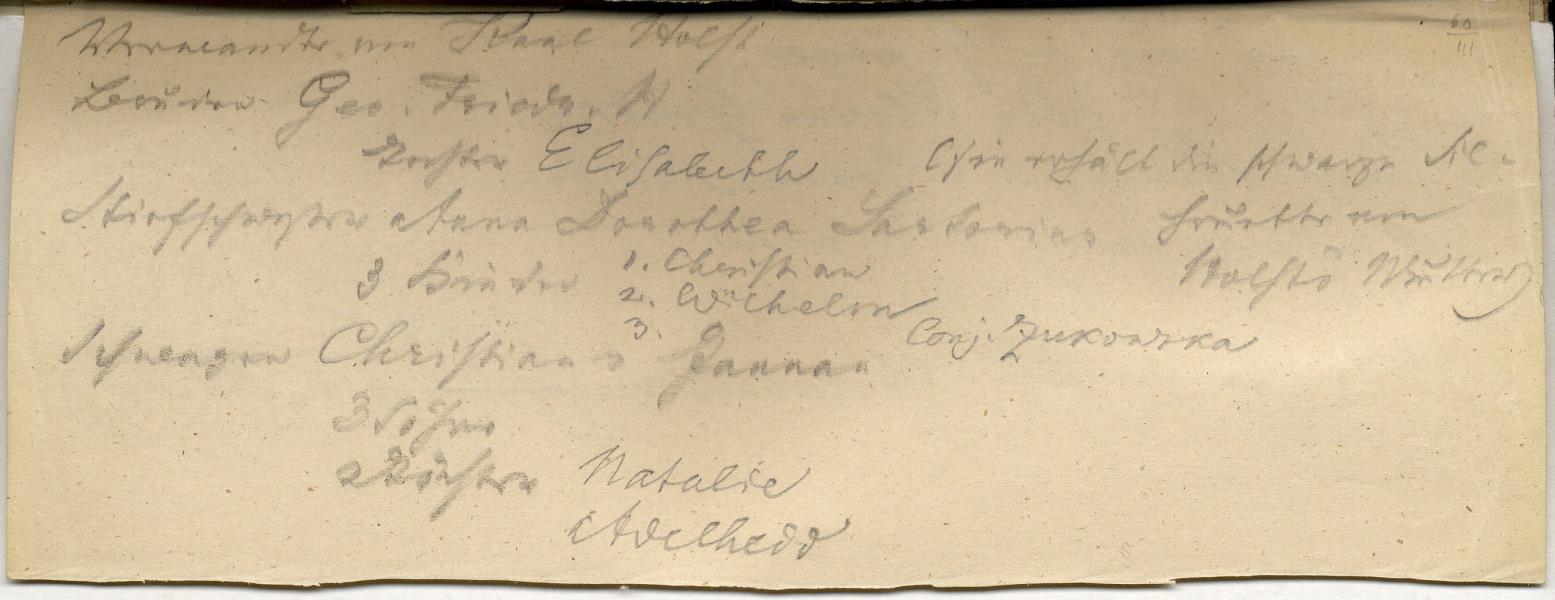 60
III
Verwandte von Karl Holst
Bruder Geo. Friedr. H
Tochter Elisabeth (sie erhält die schwarze Sil-
Stiefschwester Anna Dorothea Sartorius houette von
3 Kinder 1. Christian Holsts Mutter)
2. Wilhelm
3.
Schwager Christian Jannau Conj. Zukowska
3 Söhne
2 Töchter Natalie
Adelheid